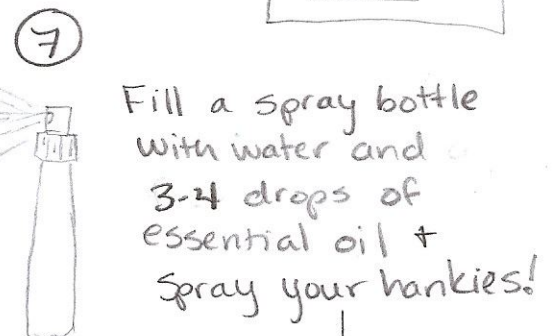 7
Fill a spray bottle
with water and
3-4 drops of
essential oil +
Spray your hankies!